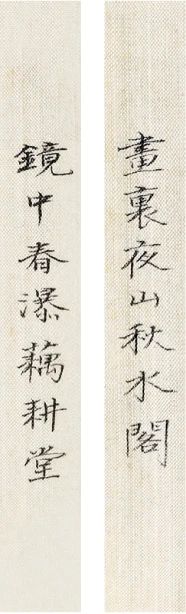 畫裏夜山秋水閣
鏡中春瀑藕耕堂